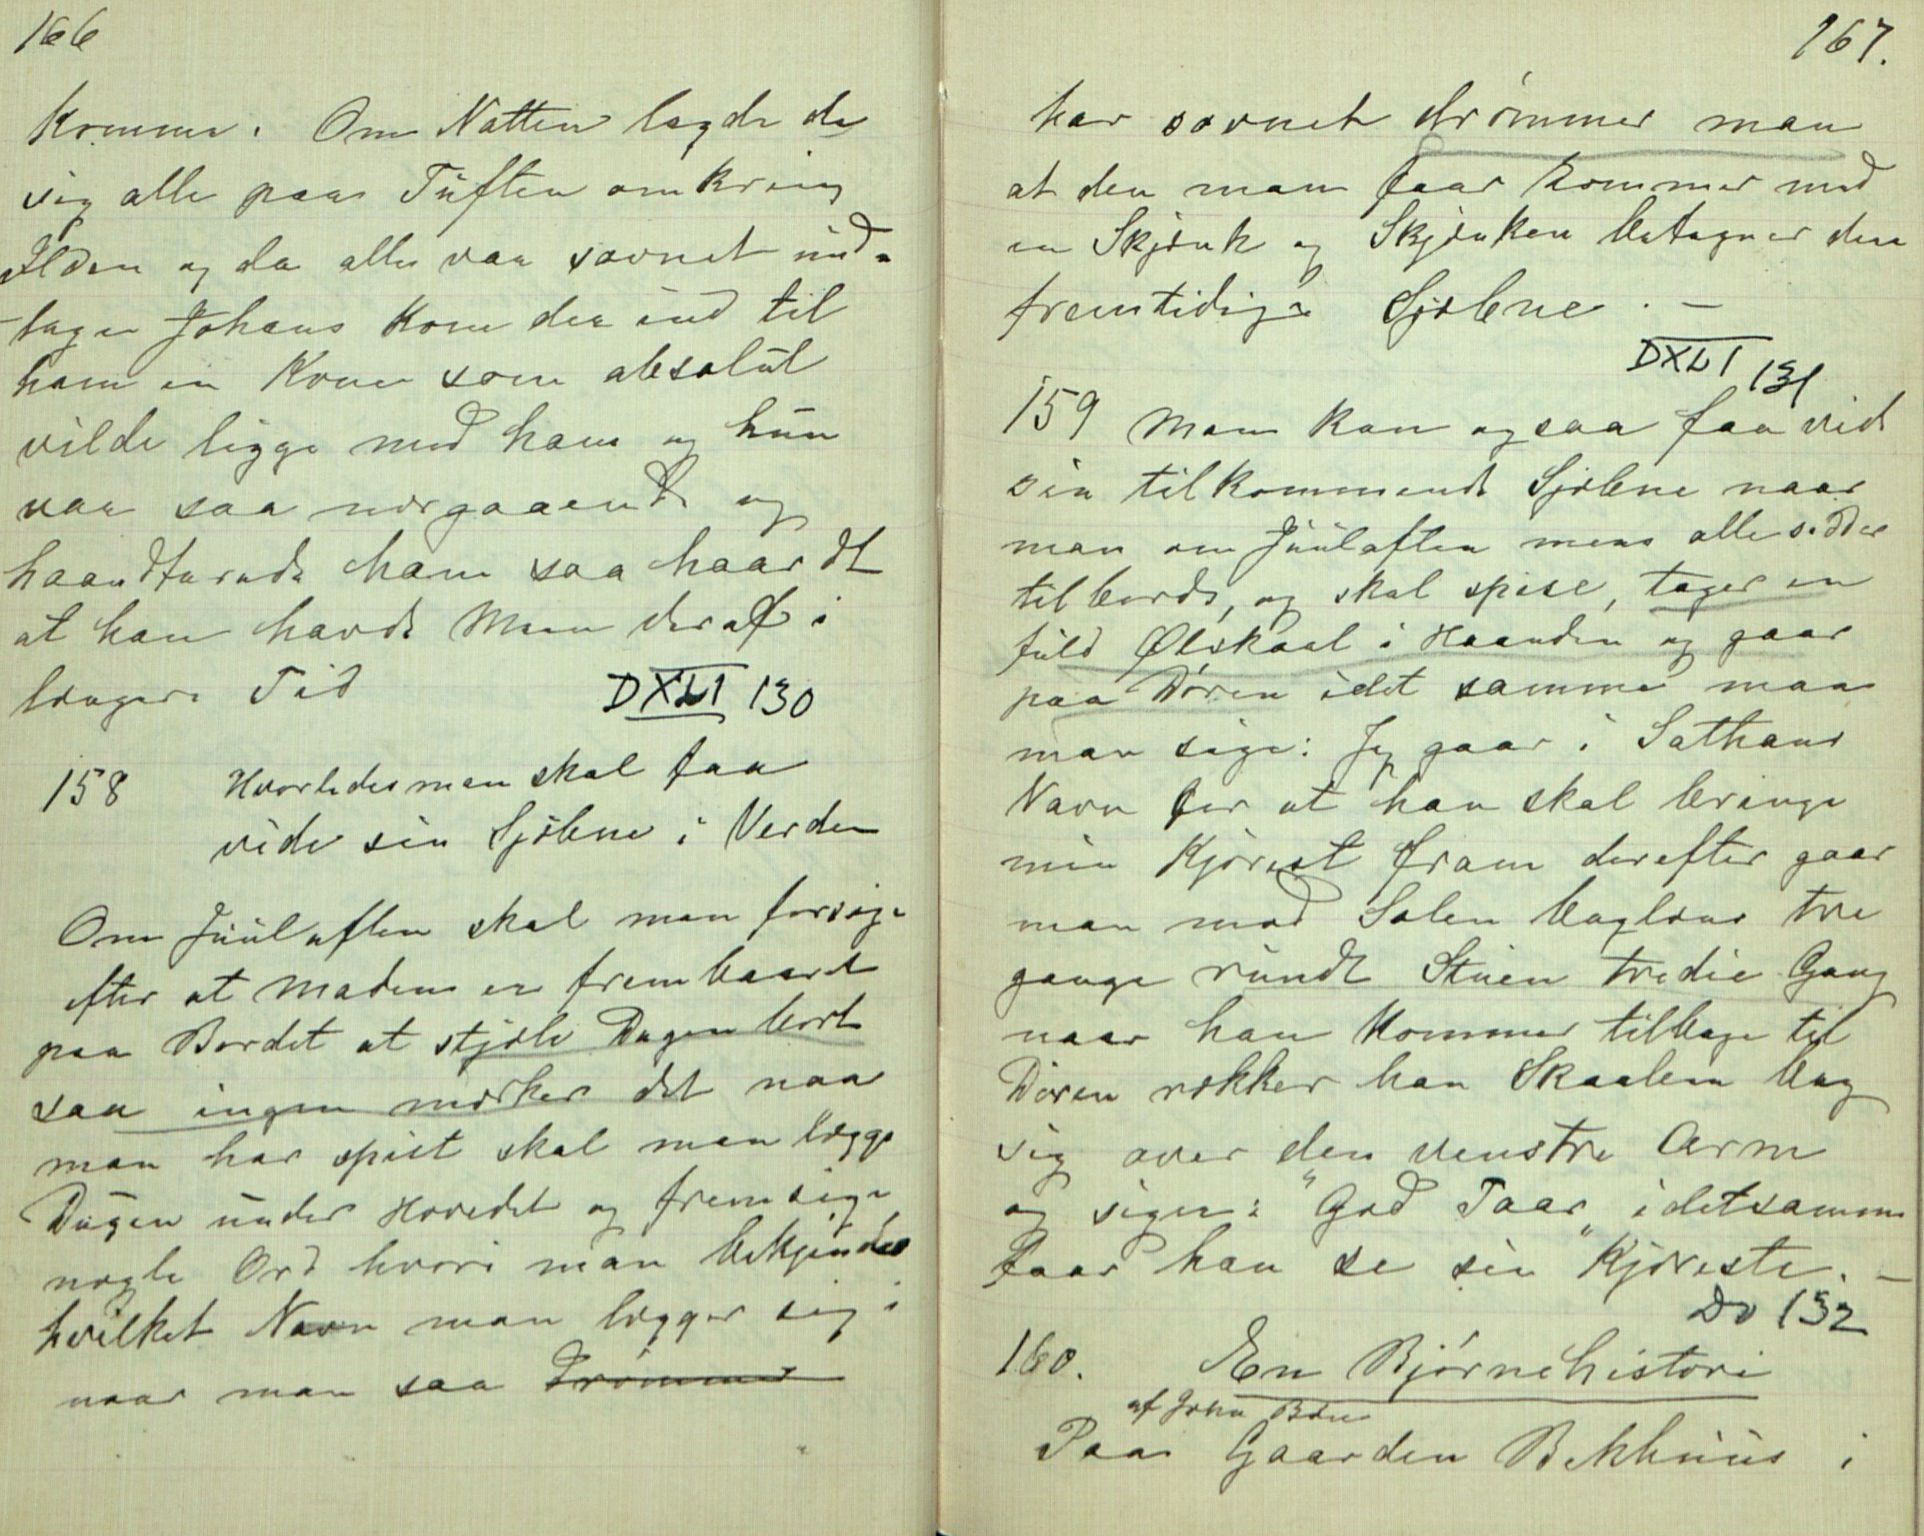 166
komme. Om Natten lagde de
sig alle paa Tuften omkring
Ilden og da alle var sovnet und-
tagen Johans kom der ind til
ham en Kone som absolut
vilde ligge med ham og hun
var saa nærgaaende og
haandterede ham saa haardt
at han havde Meen deraf i
længere Tid
DXLI 130
158 Hvorledes man skal faa
vide sin Sjølene i Verden
Om Juulaften skal man forsøge
efter at Maden er frembaaret
paa Bordet at stjæle Dugen bort
saa ingen mærker det naar
man har spist skal man lægge
Dugen under Hovedet og fremsige
nogle Ord hvori man bekjender
hvilket Navn man lægger sig i
naar man saa Drømmer
167.
har sovnet drømmer man
at den man faar kommer med
en Skjænk og Skjænken betegner den
fremtidige Sjølene. —
DXLI 131
159 Man kan ogsaa faa vide
sin tilkommende Sjølene naar
man om Juulaften mens alle sidder
tilbords, og skal spise, tager en
fuld Ølskaal i Haanden og gaar
paa Døren idet samme maa
man sige: Jeg gaar i Sathans
Navn for at han skal bringe
min Kjæreste fram derefter gaar
man mod Solen baglæns tre
gange rundt Stuen tredie Gang
naar han kommer tilbage til
Døren rækker han Skaalen bag
sig over den venstre Arm
og siger: "God Taar" idetsamme
faar han se sin Kjæreste. —
Do 132
160. En Bjørnehistori
af John Bøn
Paa Gaarden Bekhuus i